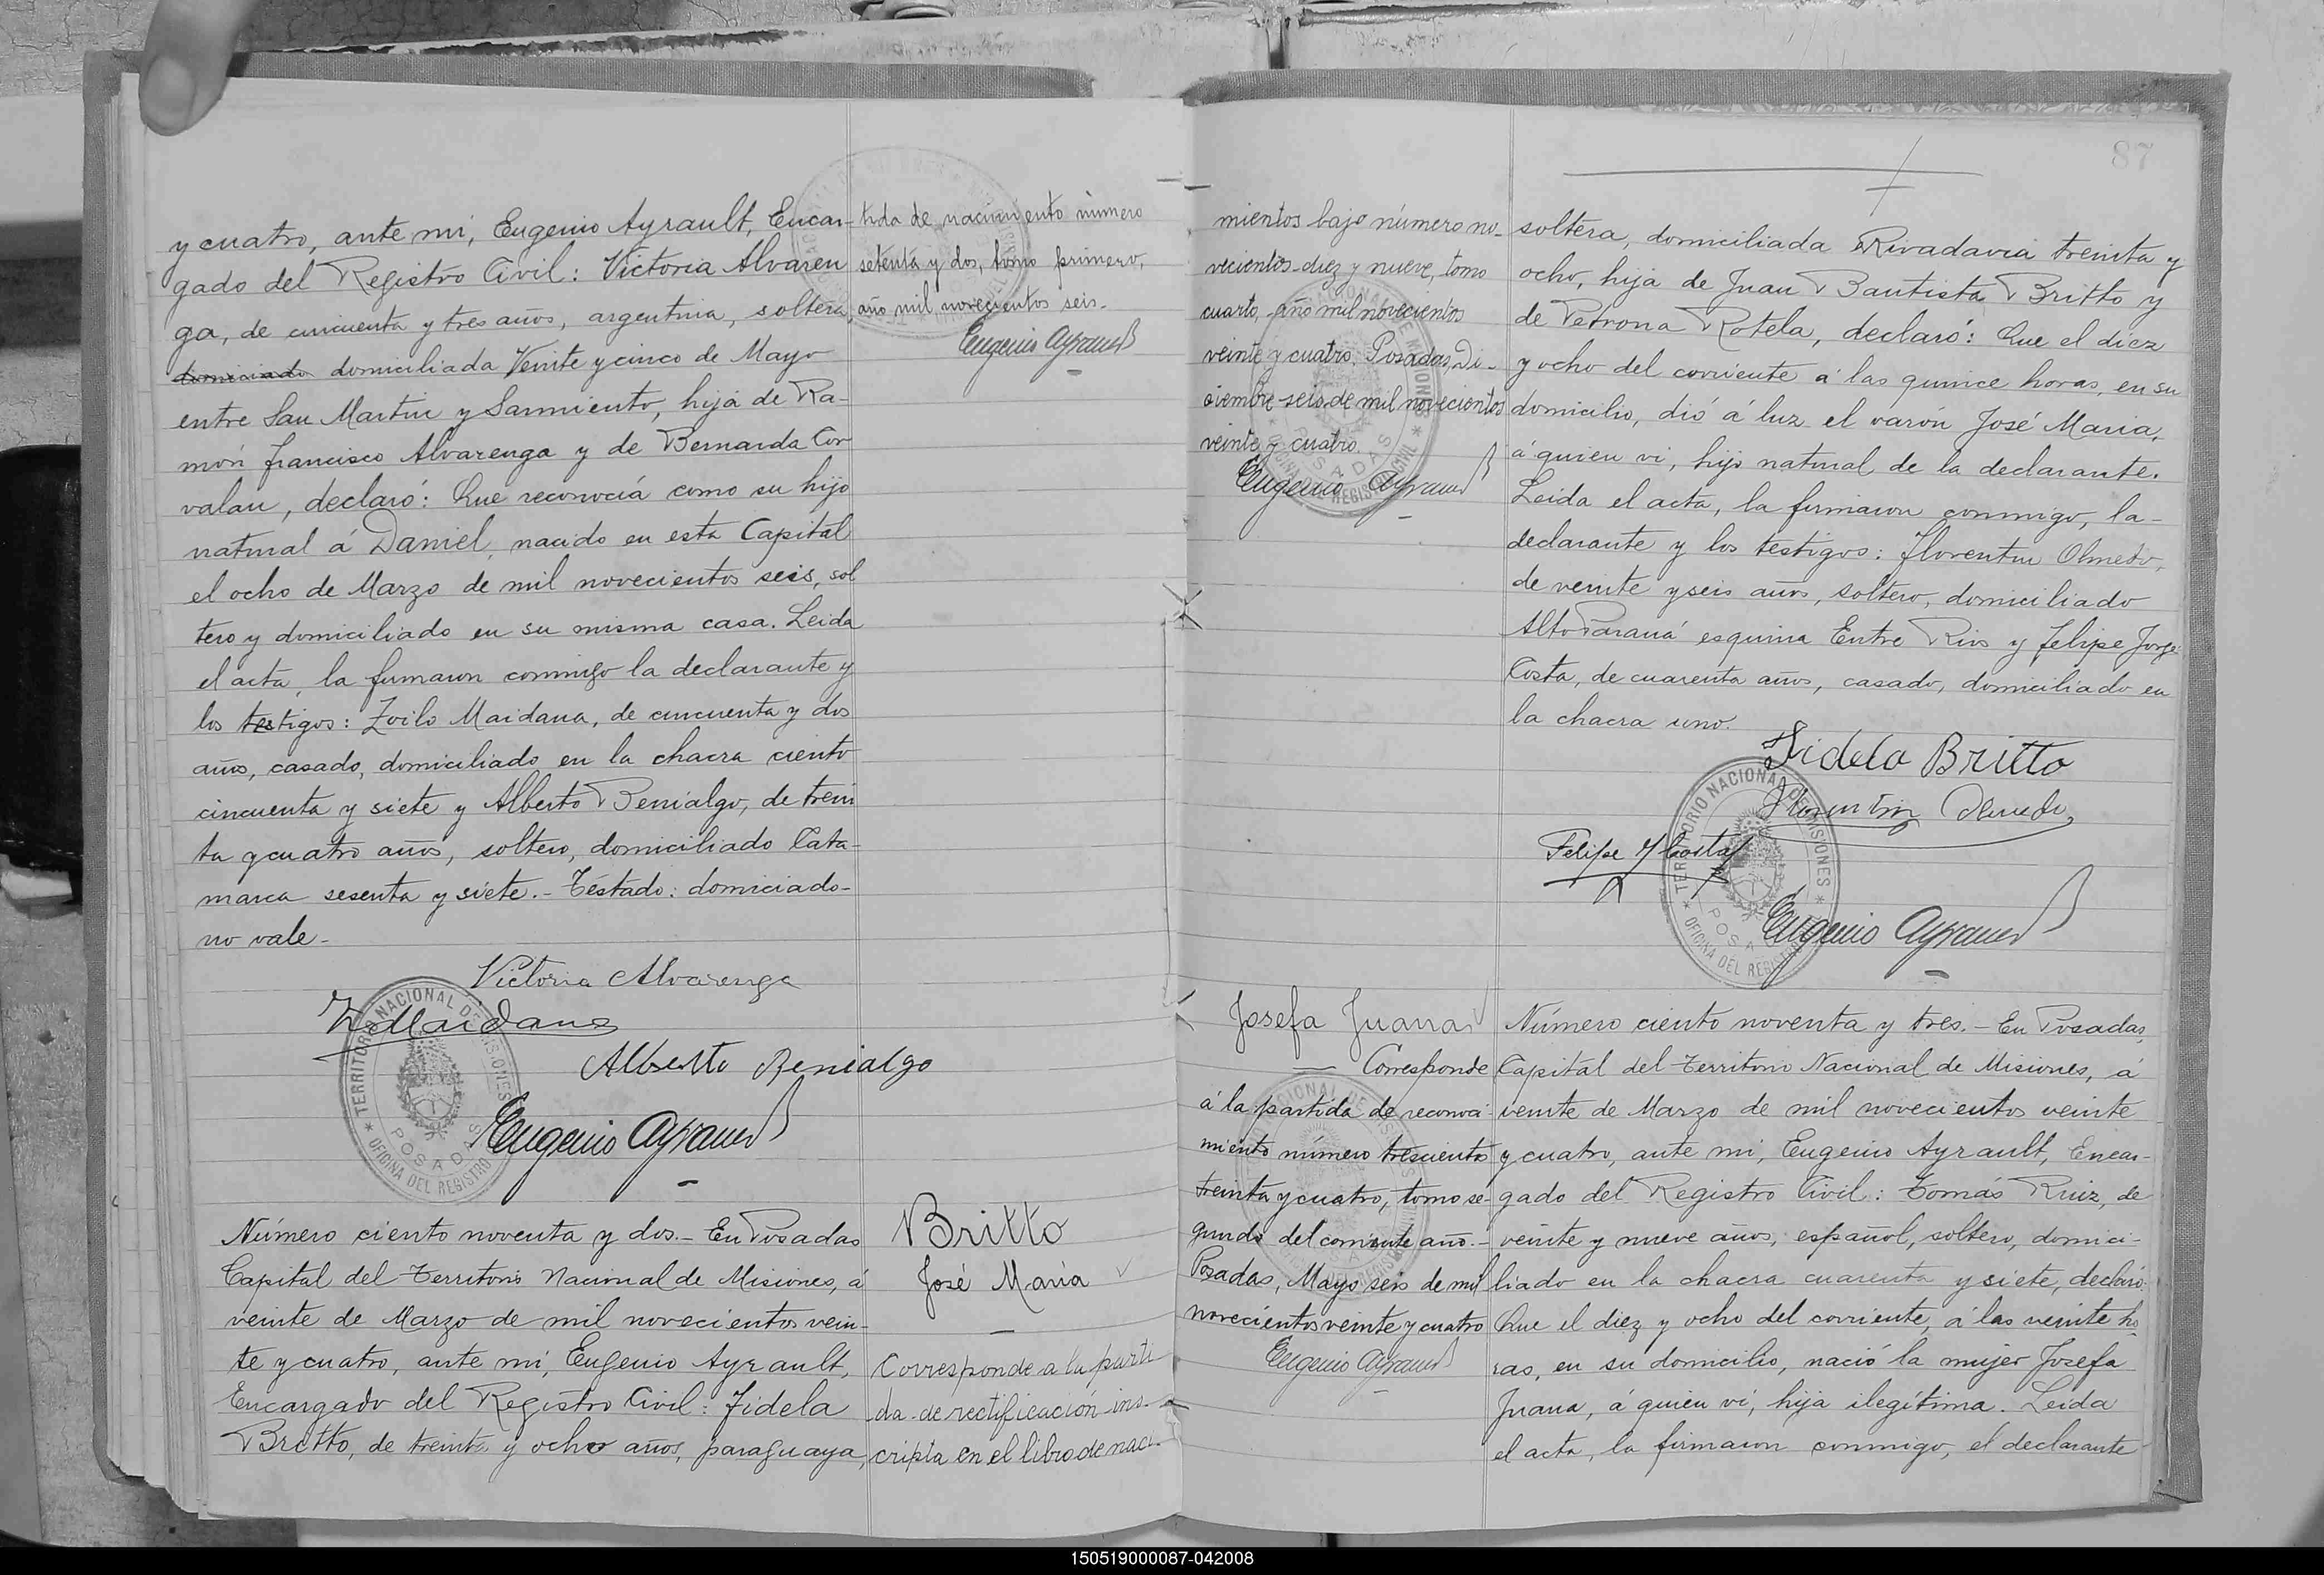 y cuatro, ante mi, Eugenio Ayrault, Encar-
gado del Registro Civil: Victoria Alvaren
ga, de cincuenta y tres años, argentina, soltera,
domiciado domiciliada Veinte y cinco de Mayo
entre San Martin y Sarmiento, hija de Ra-
món Francisco Alvarenga y de Bernarda Cor
valan, declaró: Que reconocía como su hijo
natural á Daniel, nacido en esta Capital
el ocho de Marzo de mil novecientos seis, sol
tero y domiciliado en su misma casa. Leida
el acta, la firmaron conmigo la declarante y
los testigos: Zoilo Maidana, de cincuenta y dos
años, casado, domiciliado en la chacra ciento
cincuenta y siete y Alberto Benialgo, de trein
ta y cuatro años, soltero, domiciliado Cata-
marca sesenta y siete.- Testado: domiciado-
no vale-
Victoria Alvarenga
Z Maidana
Alberto Benialgo
Eugenio Ayrault
TERRITORIO NACIONAL DE MISIONES
POSADAS
OFICINA DEL REGISTRO CIVIL
tida de nacimiento número
setenta y dos, tomo primero,
año mil novecientos seis-
Eugenio Ayrault
Número ciento noventa y dos.- En Posadas
Capital del Territorio Nacional de Misiones, á
veinte de Marzo de mil novecientos vein-
te y cuatro, ante mi, Eugenio Ayrault,
Encargado del Registro Civil: Fidela
Britto, de treinta y ocho años, paraguaya,
Britto
José María
Corresponde a la parti
da de rectificación ins-
cripta en el libro de naci-
87
mientos bajo número no-
vecientos diez y nueve, tomo
cuarto, año mil novecientos
veinte y cuatro. Posadas, Di-
ciembre seis de mil novecientos
veinte y cuatro.
Eugenio Ayrault
soltera, domiciliada Rivadavia treinta y
ocho, hija de Juan Bautista Britto y
de Petrona Rotela, declaró: Que el diez
y ocho del corriente á las quince horas, en su
domicilio, dió á luz el varón José María,
á quien vi, hijo natural de la declarante.
Leida el acta, la firmaron conmigo, la-
declarante y los testigos: Florentin Olmedo,
de veinte y seis años, soltero, domiciliado
Alto Paraná esquina Entre Rios y Felipe Jorge
Costa, de cuarenta años, casado, domiciliado en
la chacra uno.
Fidela Britto
Florentin Olmedo
Felipe J Costa
Eugenio Ayrault
TERRITORIO NACIONAL DE MISIONES
POSADAS
OFICINA DEL REGISTRO CIVIL
Josefa Juana
Corresponde
á la partida de reconoci-
miento número trescientos
treinta y cuatro, tomo se-
gundo del corriente año.-
Posadas, Mayo seis de mil
novecientos veinte y cuatro
Eugenio Ayrault
Número ciento noventa y tres.- En Posadas,
Capital del Territorio Nacional de Misiones, á
veinte de Marzo de mil novecientos veinte
y cuatro, ante mi, Eugenio Ayrault, Encar-
gado del Registro Civil: Tomás Ruiz, de
veinte y nueve años, español, soltero, domici-
liado en la chacra cuarenta y siete, declaró:
Que el diez y ocho del corriente, á las veinte ho
ras, en su domicilio, nació la mujer Josefa
Juana, á quien vi, hija ilegítima. Leida
el acta, la firmaron conmigo, el declarante
150519000087-042008